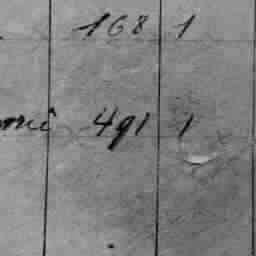 168 1
491 1